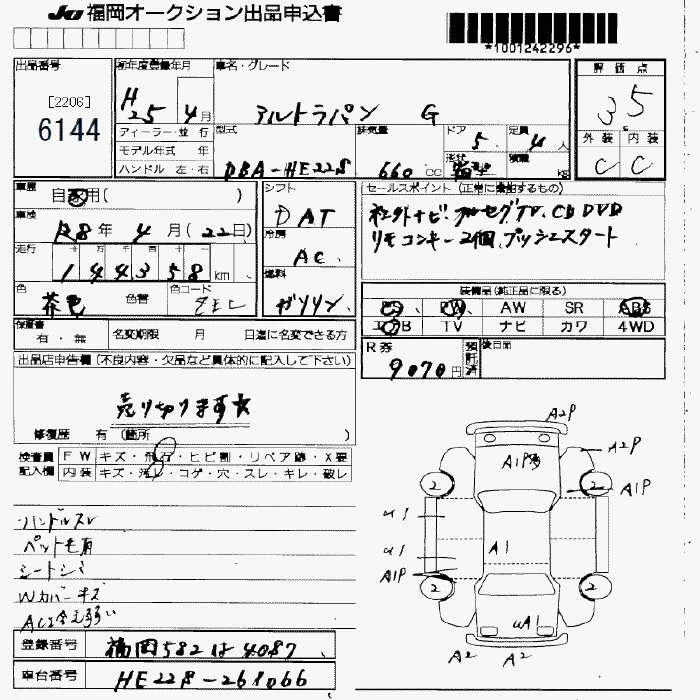 JU 福岡オークション出品申込書
*1001242296*
出品番号
[2206]
6144
初年度登録年月
H 25 4月
車名・グレード
アルトラパン G
評価点
3.5
外装 内装
C C
ディーラー・並行
モデル年式 年
ハンドル 左・右
型式
DBA-HE22S
排気量
660 CC
ドア
5
形状
定員
4人
積載
kg
車歴
自家用( )
車検
R8年 4月(22日)
走行
144358km
色
茶色 色替
色コード
シフト
DAT
冷房
AC
燃料
ガソリン
セールスポイント(正常に機能するもの)
社外ナビ・フルセグTV、CD DVD
リモコンキー2個、プッシュスタート
装備品(純正品に限る)
PS PW AW SR ABS
エアB TV ナビ カワ 4WD
保書書
有・無
名変期限 月 日迄に名変できる方
R券
9070円
預託済
後日面
出品店申告欄(不良内容・欠品など具体的に記入して下さい)
売り切ります★
修復歴 有(箇所 )
検査員記入欄
FW キズ・飛石・ヒビ割・リペア跡・X要
内装 キズ・汚レ・コゲ・穴・スレ・キレ・破レ
ハンドルスレ
ペット毛有
シートシミ
Wカバーキズ
AC冷え弱い
登録番号
福岡582は4087
車台番号
HE22S-268066
A2P
A1P
A2P
A1P
2
2
2
2
A1
A1P
A2
A2